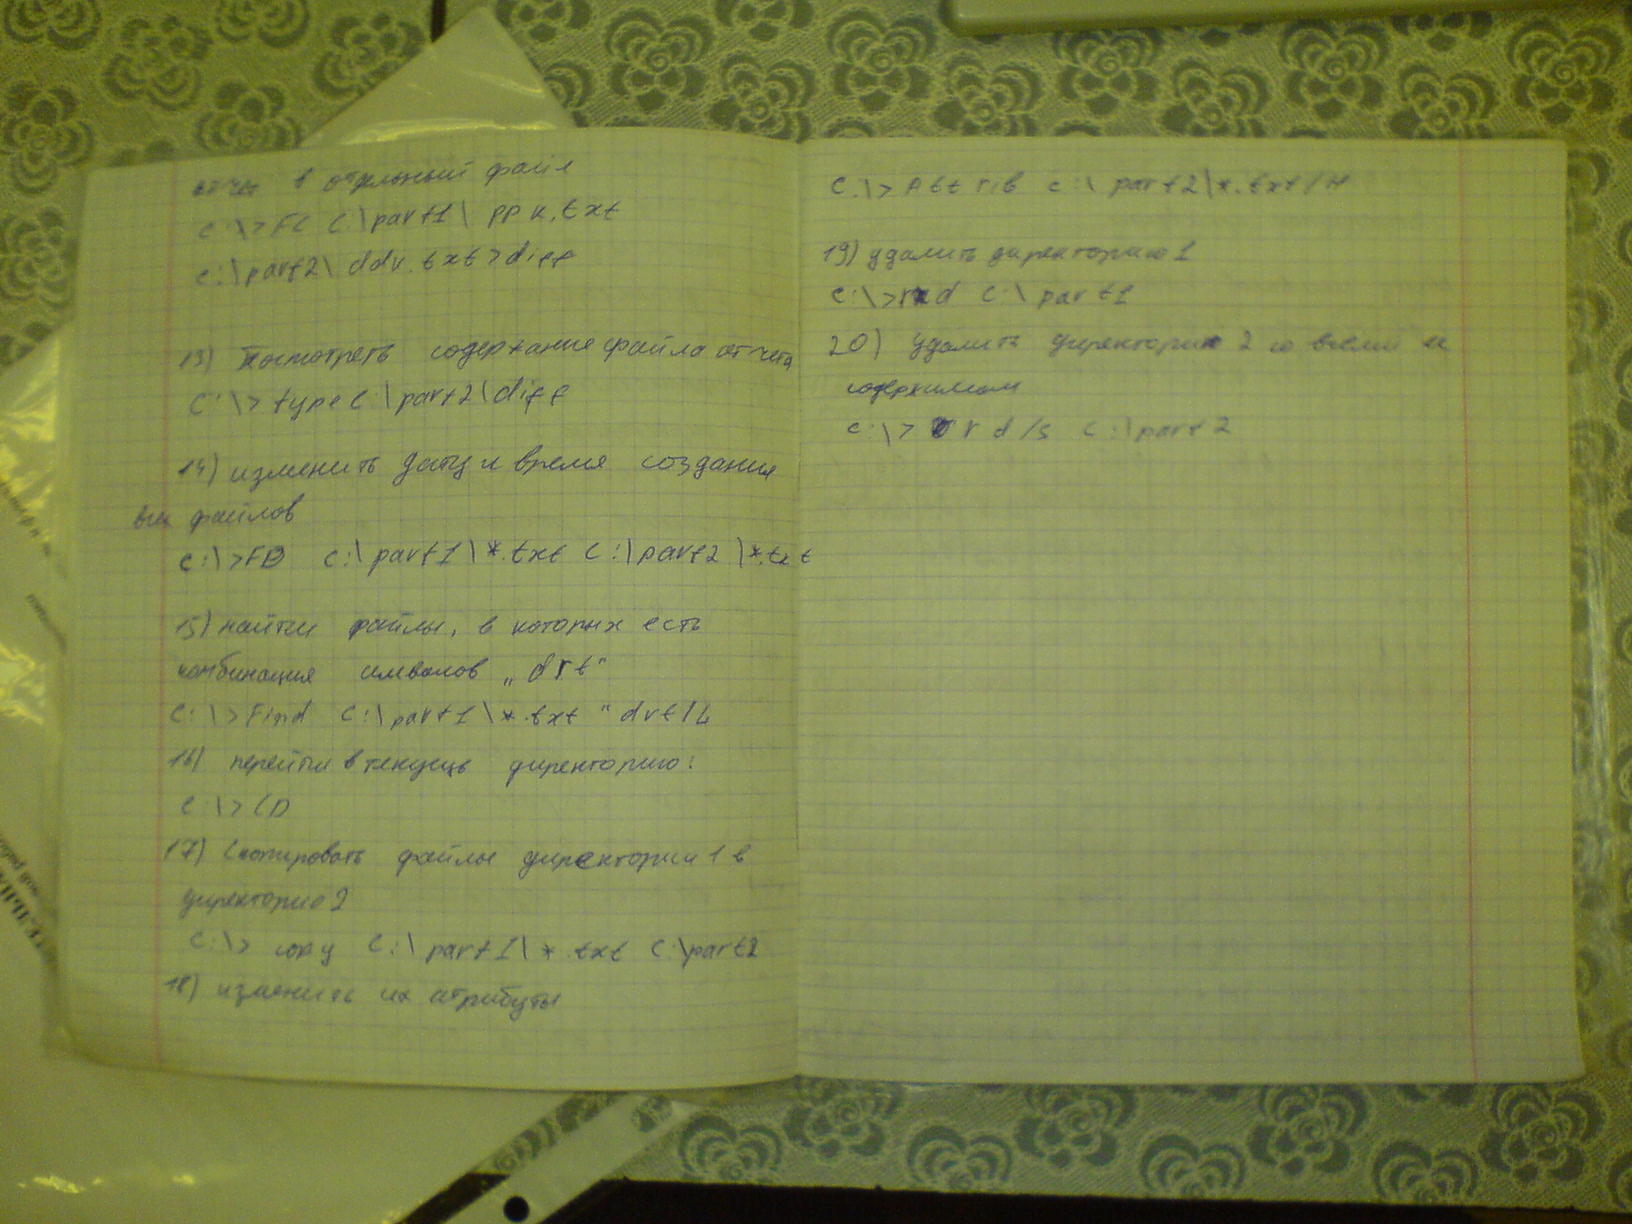 в отдельный файл
c:\>FC C:\part1\ ppk.txt
c:\part2\ ddv.txt>diff
13) Посмотреть содержание файла отчета
C:\>type C:\part2\diff
14) изменить дату и время создания
всех файлов
c:\>FD c:\part1\*.txt C:\part2\*.txt
15) найти файлы, в которых есть
комбинация символов „drt“
C:\>Find C:\part1\*.txt "drt/L
16) перейти в текущ директорию:
C:\>CD
17) Скопировать файлы директории 1 в
директорию 2
C:\> copy C:\part1\*.txt C:\part2
18) изменить их атрибуты
C:\>Attrib c:\part2\*.txt/H
19) удалить директорию 1
C:\>rd C:\part1
20) Удалить директорию 2 со всем ее
содержимым
C:\> rd /s C:\part2